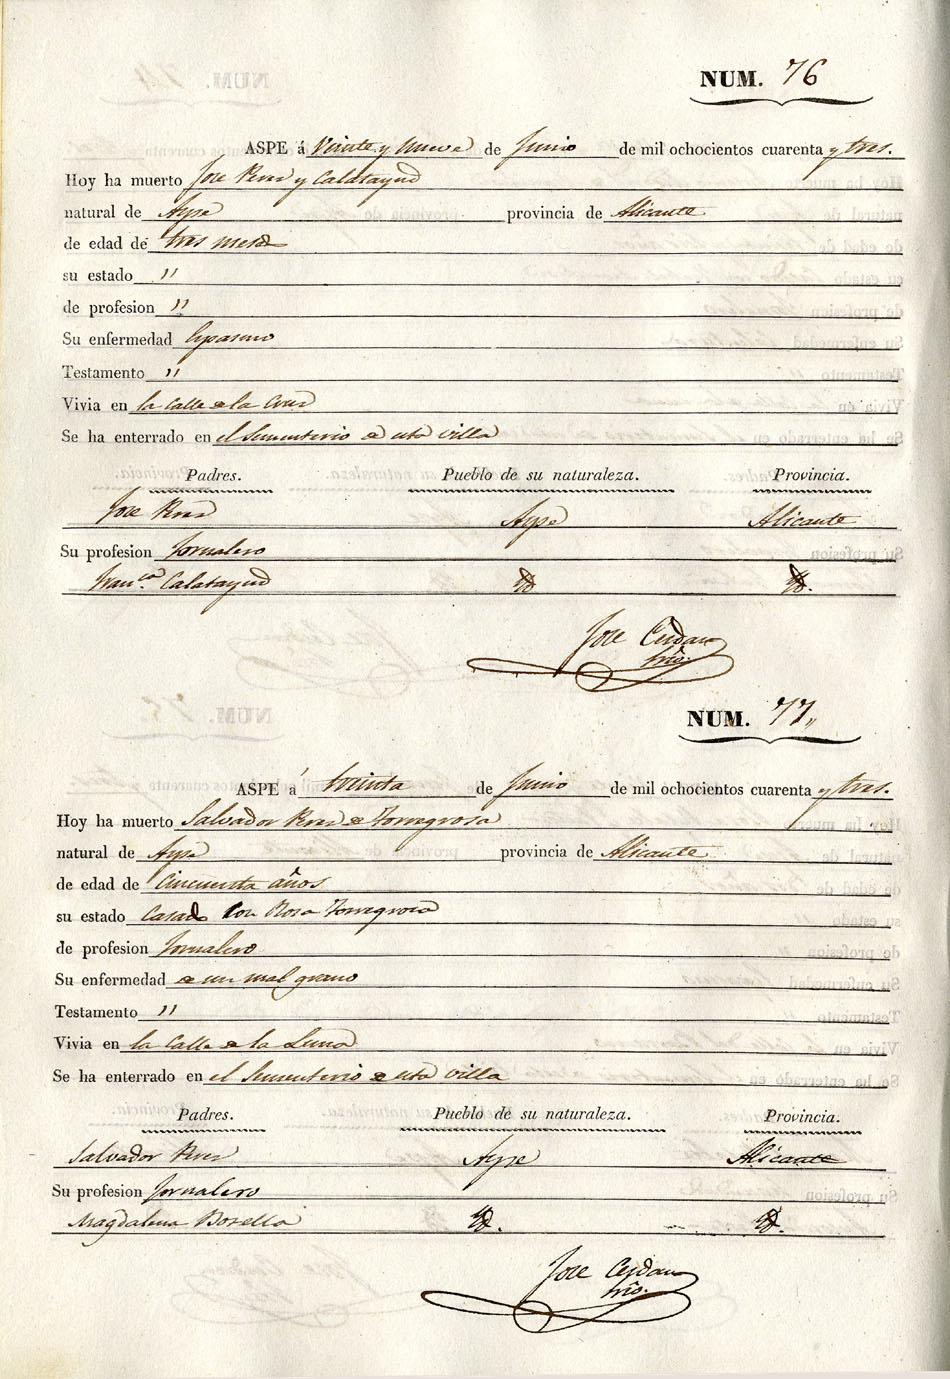 NUM. 76
ASPE á Veinte y nueve de Junio de mil ochocientos cuarenta y tres.
Hoy ha muerto Jose Perez y Calatayud
natural de Aspe provincia de Alicante
de edad de tres meses
su estado "
de profesion "
Su enfermedad Espasmo
Testamento "
Vivia en la Calle de la Cruz
Se ha enterrado en el Sementerio de esta villa
Padres. Pueblo de su naturaleza. Provincia.
Jose Perez Aspe Alicante
Su profesion Jornalero
Fran.ca Calatayud Yd Yd.
Jose Cerdan
Srio.
NUM. 77"
ASPE á treinta de Junio de mil ochocientos cuarenta y tres.
Hoy ha muerto Salvador Perez de Torregrosa
natural de Aspe provincia de Alicante
de edad de Cincuenta años
su estado Casado con Rosa Torregrosa
de profesion Jornalero
Su enfermedad de un mal grano
Testamento "
Vivia en la Calle de la Luna
Se ha enterrado en el Sementerio de esta villa
Padres. Pueblo de su naturaleza. Provincia.
Salvador Perez Aspe Alicante
Su profesion Jornalero
Magdalena Botella Yd. Yd.
Jose Cerdan
Srio.